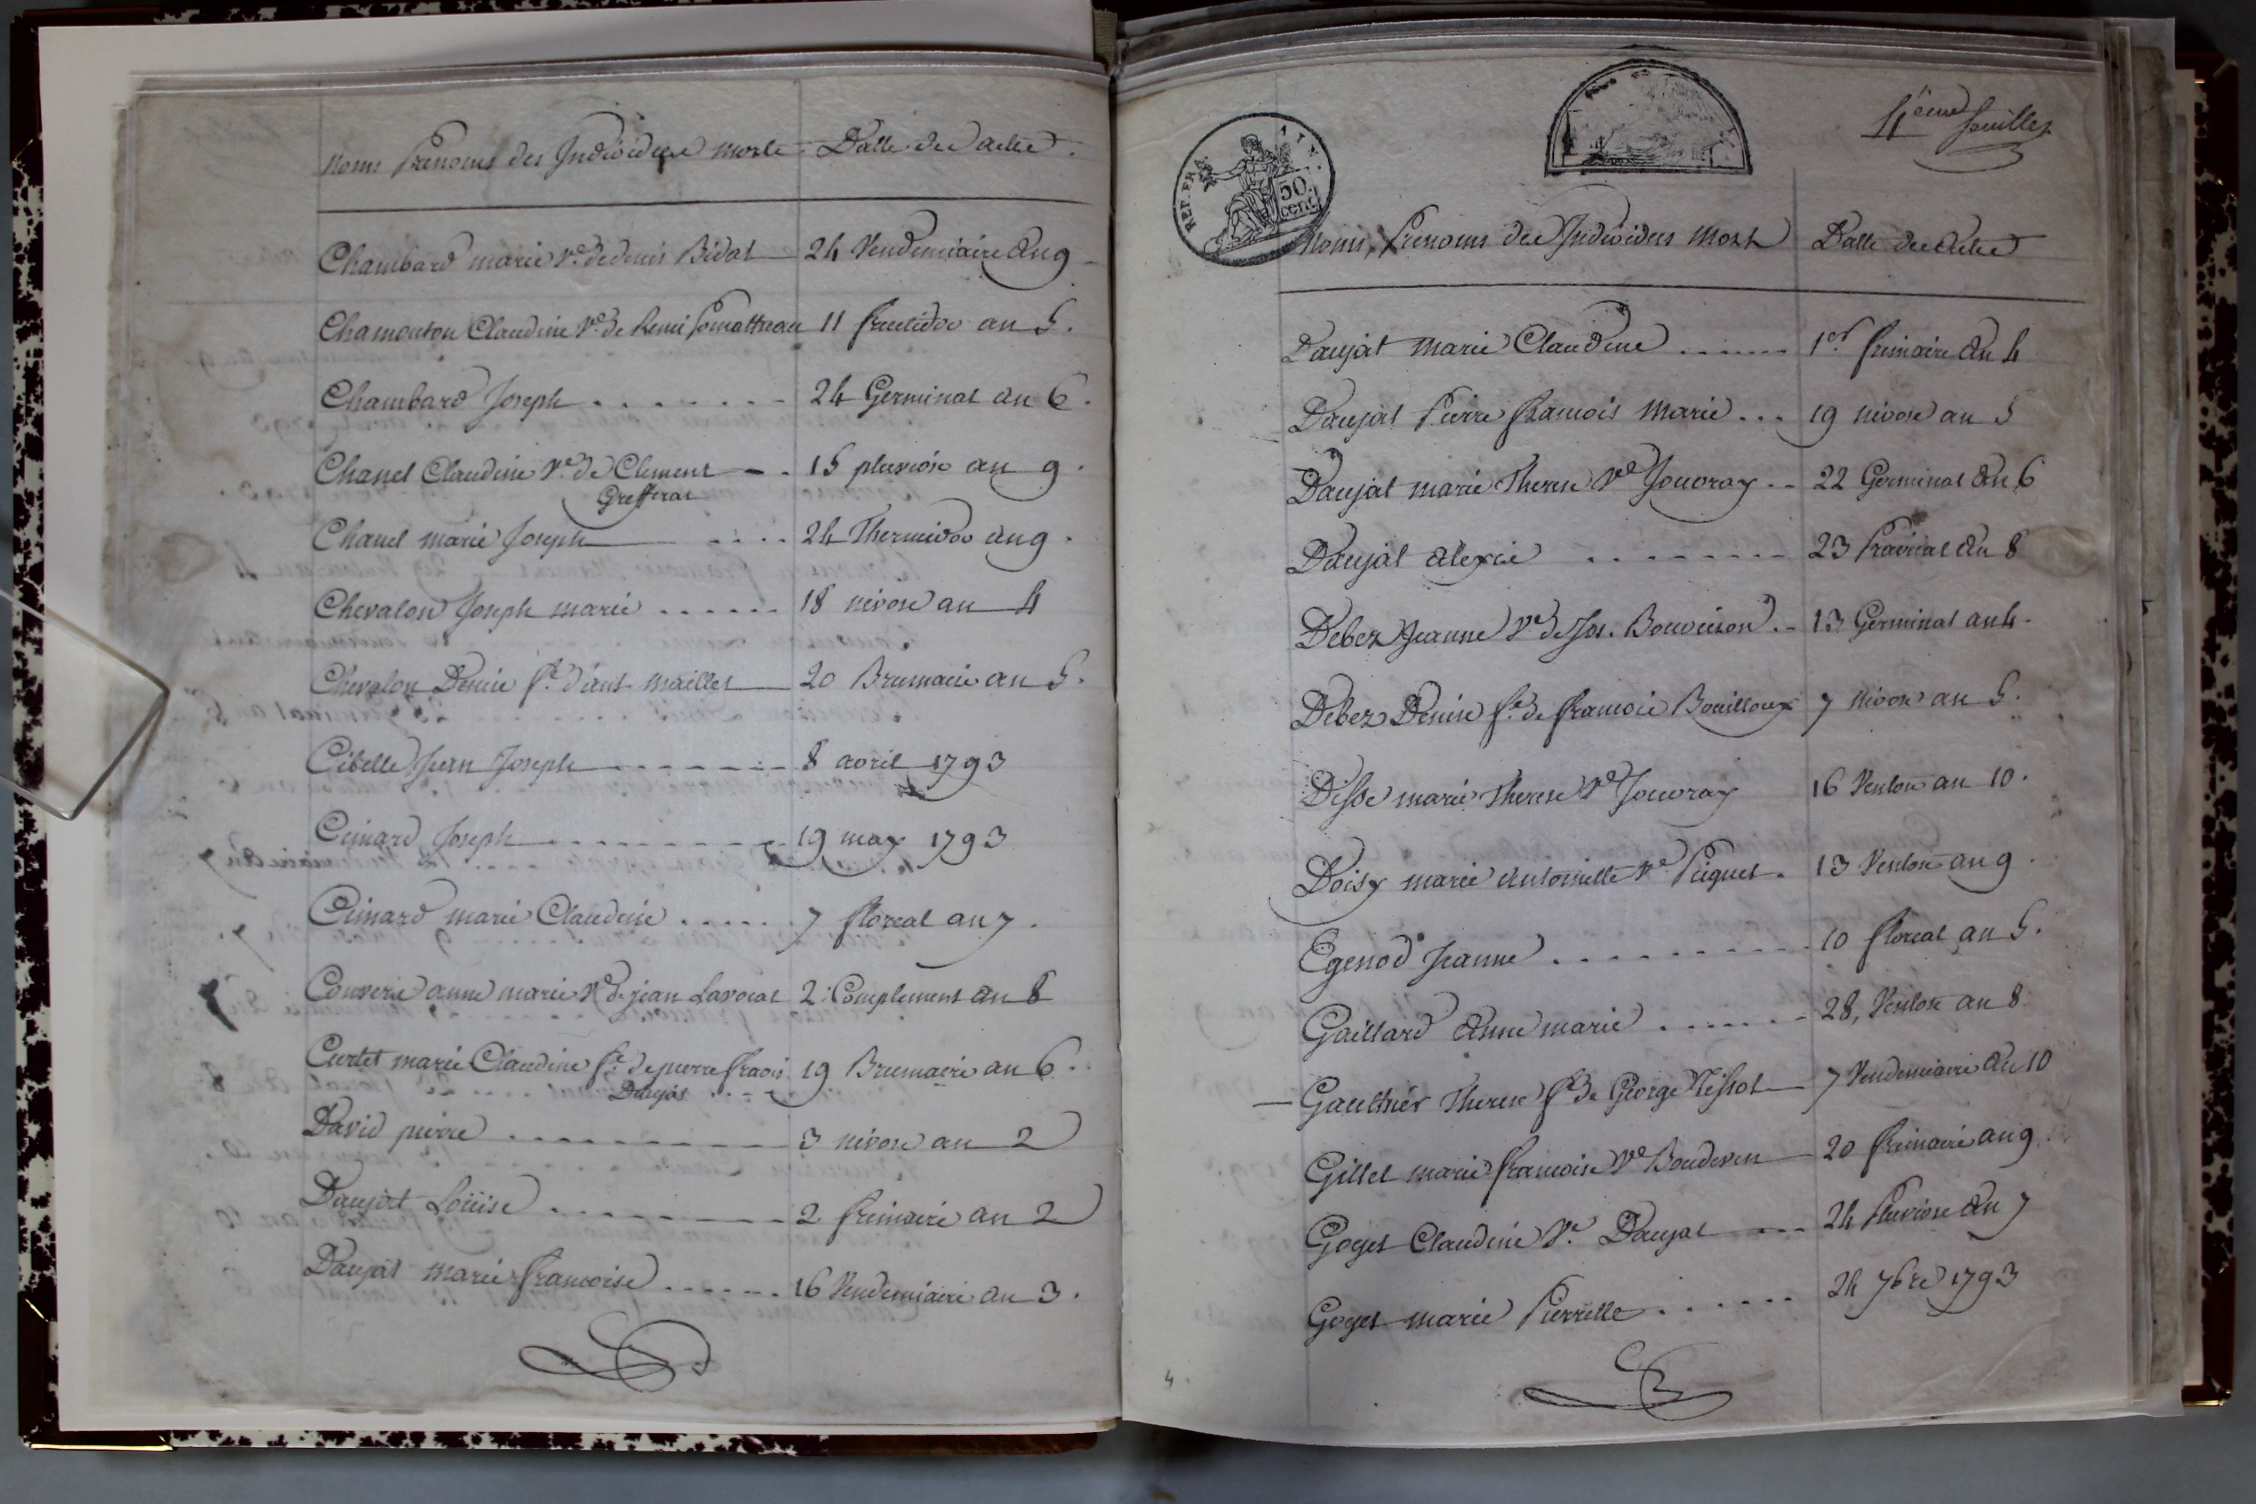 Noms Prenoms des Individus morts Datte des actes.
Chambard marie Ve. de denis Bidat 24 Vendemiaire an 9
Chamouton Claudine Ve. de Remi Pomathiau 11 fructidor an 5.
Chambard Joseph 24 Germinal an 6.
Chanel Claudine Ve. de Clement 15 pluviose an 9.
Grefferat
Chanel marie Joseph 24 Thermidor an 9.
Chevalon Joseph marie 18 nivose an 4
Chevalon Denise fe. d'ant maillet 20 Brumaire an 5.
Cibelle Jean Joseph 8 avril 1793
Cuinard Joseph 19 may 1793
Cuinard marie Claudine 7 floreal an 7.
Couverie anne marie Ve de jean Lavocat 2. Complement an 8
Curlet marie Claudine fe. de pierre fraois 19 Brumaire an 6.
Daujat
David pierre 3 nivose an 2
Daujat Louise 2 frimaire an 2
Daujat marie francoise 16 Vendemiaire an 3.
REP. FR.
50 cent
4eme feuillet
Noms, Prenoms des Individus Morts Datte des Actes
Daujat marie Claudine 1er frimaire an 4
Daujat Pierre francois Marie 19 nivose an 5
Daujat marie Therese Ve Jouvray 22 Germinal an 6
Daujat alexis 23 Prairial an 8
Debez Jeanne Ve de Jos. Bouvuison 13 Germinal an 4.
Debez Denise fe. de francois Bouilloux 7 nivose an 5.
Disse marie Therese Ve Jouvray 16 Ventose an 10.
Doisy marie antoinette Ve Piquet. 13 Ventose an 9.
Egenod Jeanne 10 floreal an 5.
Gaillard anne marie 28, Ventose an 8
Gaulthier Therese fe de George Nissot 7 Vendemiaire an 10
Gillet marie francoise Ve Bondeven 20 frimaire an 9.
Goyet Claudine Ve. Daujat 24 Pluviose an 7
Goyet marie Pierrette 24 7bre 1793
4.